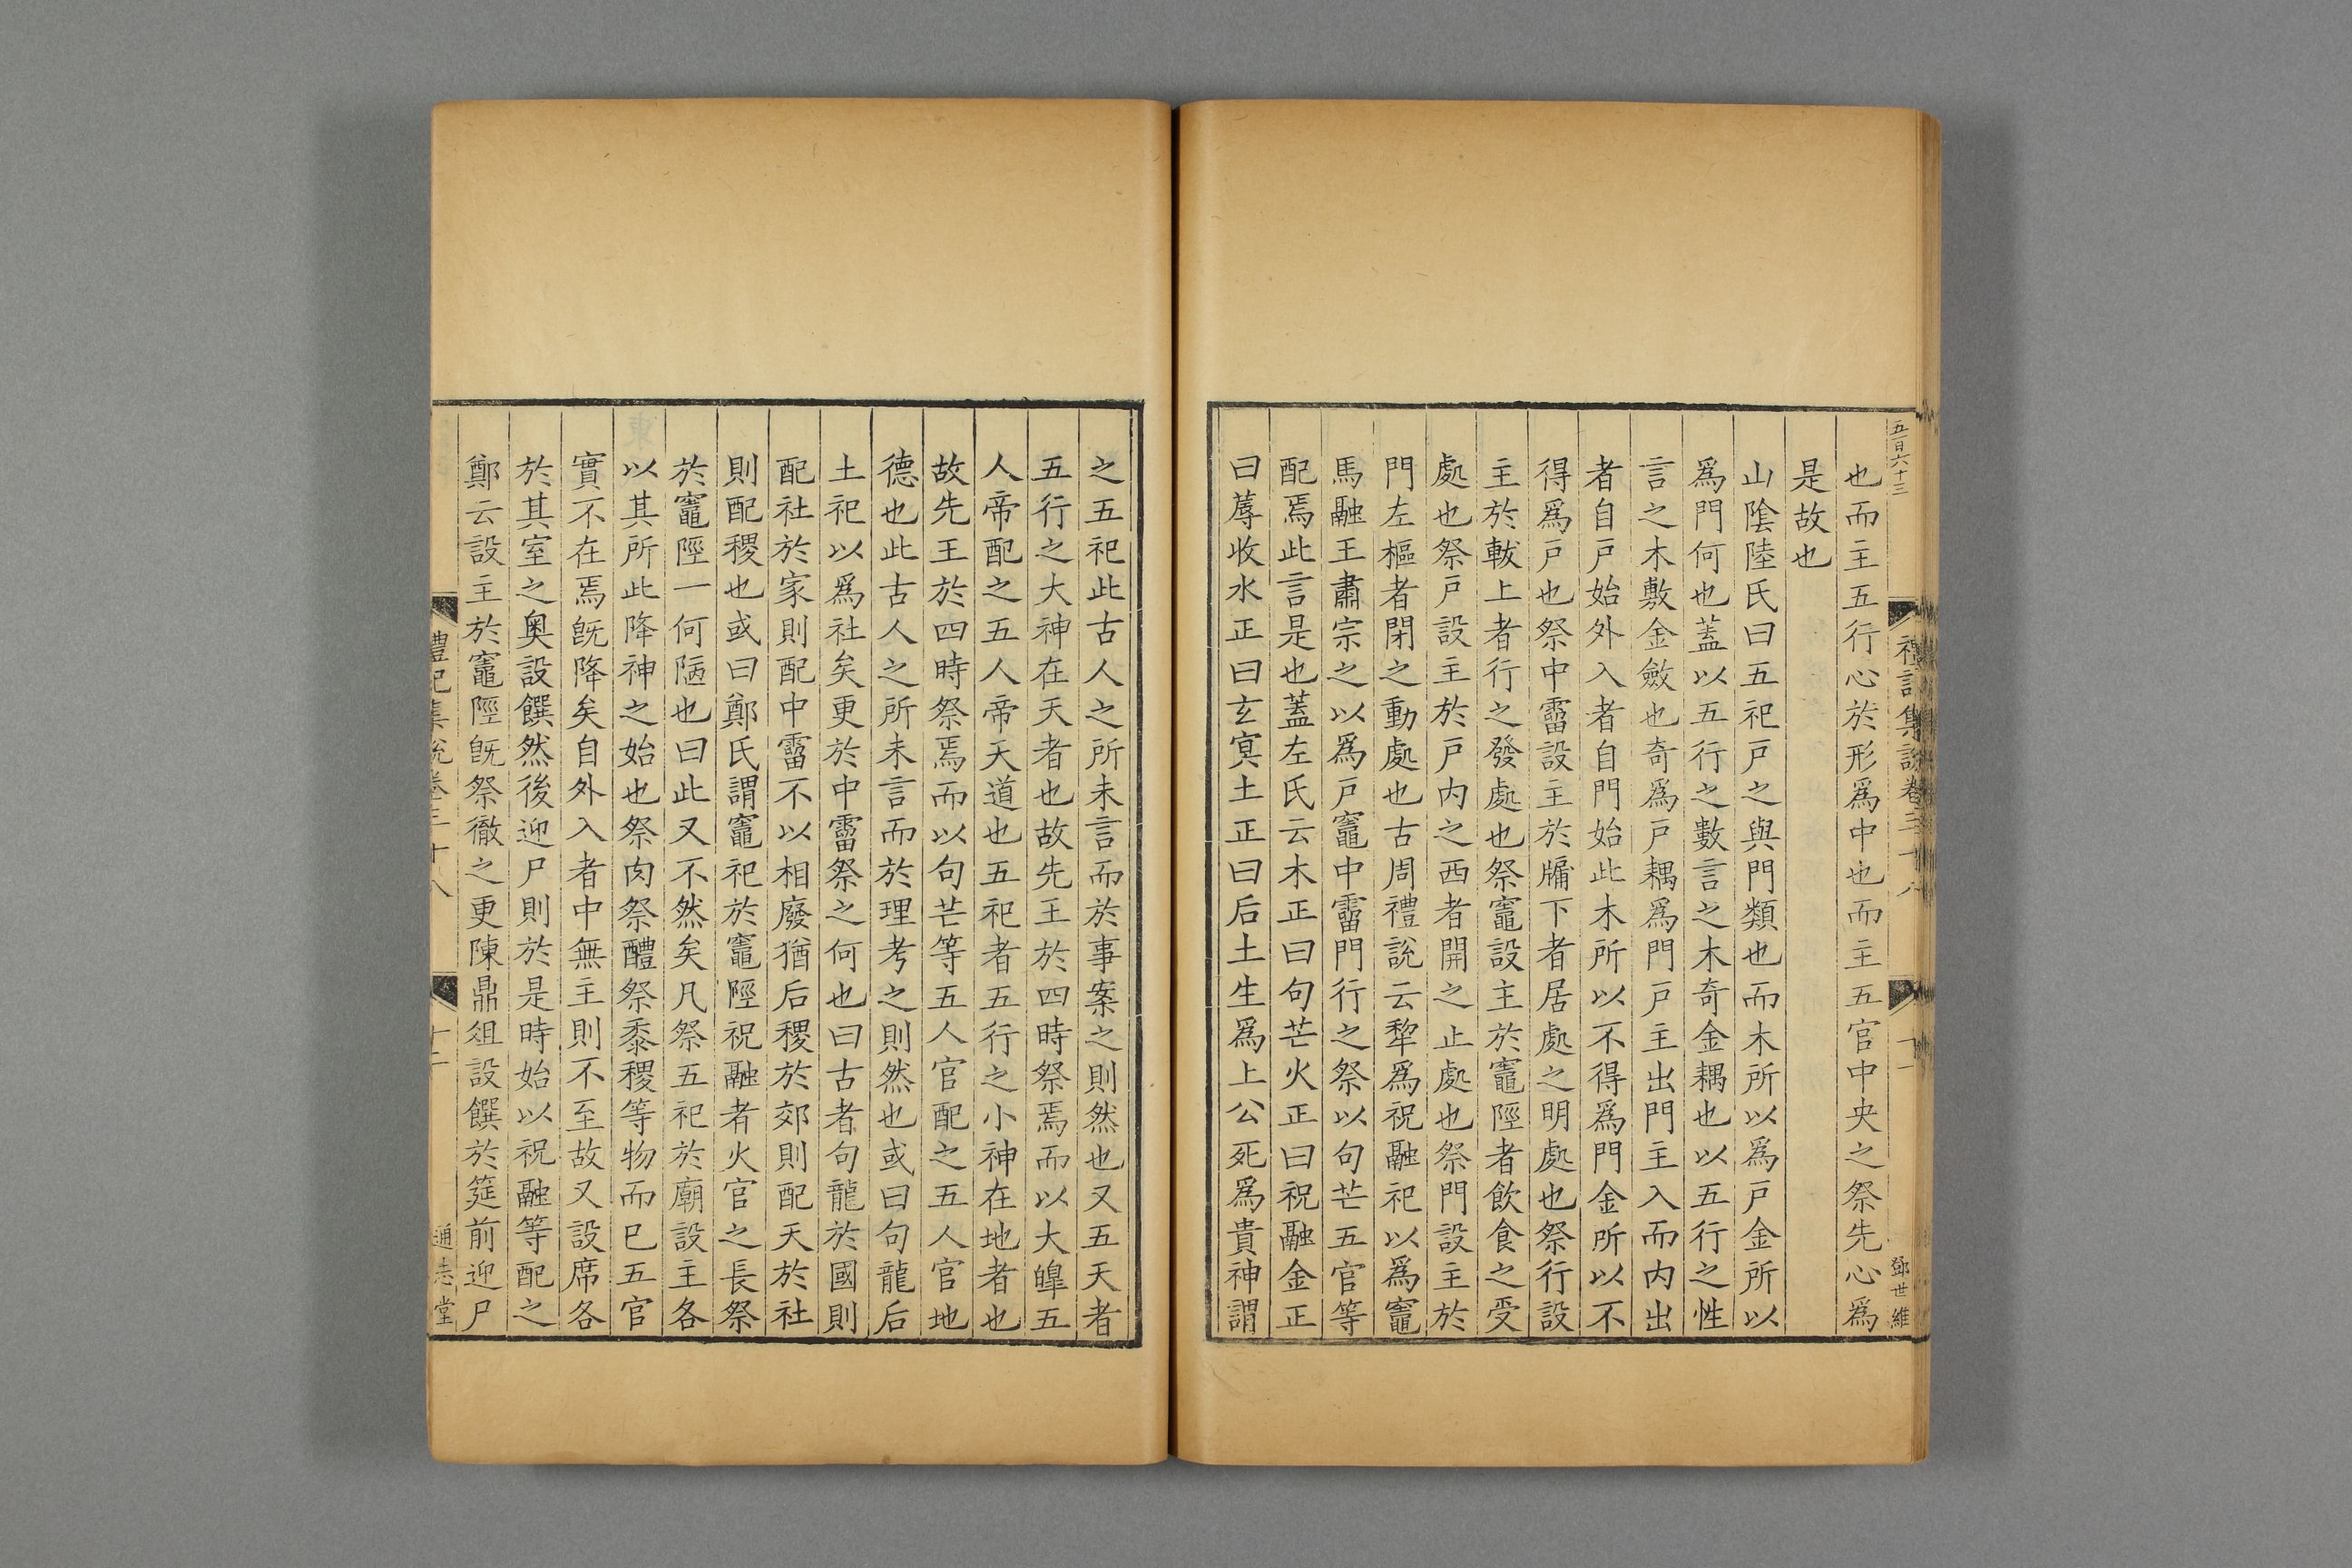 五百六十三
禮記集說卷三十八
鄧世維
也而主五行心於形爲中也而主五官中央之祭先心爲
是故也
山陰陸氏曰五祀戸之與門類也而木所以爲戸金所以
爲門何也蓋以五行之數言之木奇金耦也以五行之性
言之木敷金斂也奇爲戸耦爲門戸主出門主入而内出
者自戸始外入者自門始此木所以不得爲門金所以不
得爲戸也祭中霤設主於牖下者居處之明處也祭行設
主於軷上者行之發處也祭竈設主於竈陘者飲食之受
處也祭戸設主於戸内之西者開之止處也祭門設主於
門左樞者閉之動處也古周禮說云犂爲祝融祀以爲竈
馬融王肅宗之以爲戸竈中霤門行之祭以句芒五官等
配焉此言是也蓋左氏云木正曰句芒火正曰祝融金正
曰蓐收水正曰玄冥土正曰后土生爲上公死爲貴神謂
之五祀此古人之所未言而於事案之則然也又五天者
五行之大神在天者也故先王於四時祭焉而以大皥五
人帝配之五人帝天道也五祀者五行之小神在地者也
故先王於四時祭焉而以句芒等五人官配之五人官地
德也此古人之所未言而於理考之則然也或曰句龍后
土祀以爲社矣更於中霤祭之何也曰古者句龍於國則
配社於家則配中霤不以相廢猶后稷於郊則配天於社
則配稷也或曰鄭氏謂竈祀於竈陘祝融者火官之長祭
於竈陘一何陋也曰此又不然矣凡祭五祀於廟設主各
以其所此降神之始也祭肉祭醴祭黍稷等物而巳五官
實不在焉旣降矣自外入者中無主則不至故又設席各
於其室之奥設饌然後迎尸則於是時始以祝融等配之
鄭云設主於竈陘旣祭徹之更陳鼎俎設饌於筵前迎尸
禮記集說卷三十八
十二
通志堂